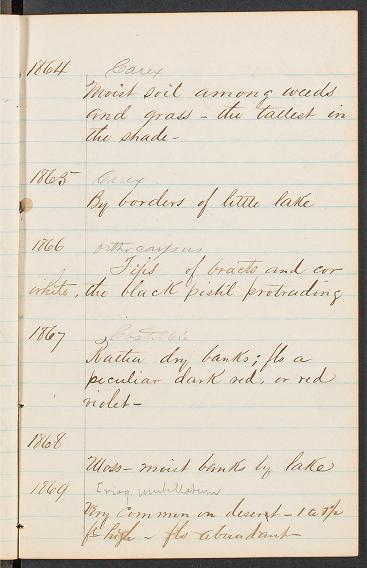 1864 Carex
Moist soil among weeds
and grass - the tallest in
the shade -
1865 Carex
By borders of little lake
1866 Orthocarpus
Tips of bracts and cor
white, the black pistil protruding
1867 Castilleia
Rather dry banks; fls a
peculiar dark red, or red
violet -
1868
Moss - moist banks by lake
1869 Eriog umbellatum
Very common on desert - 1 a
ft high - fls abundant